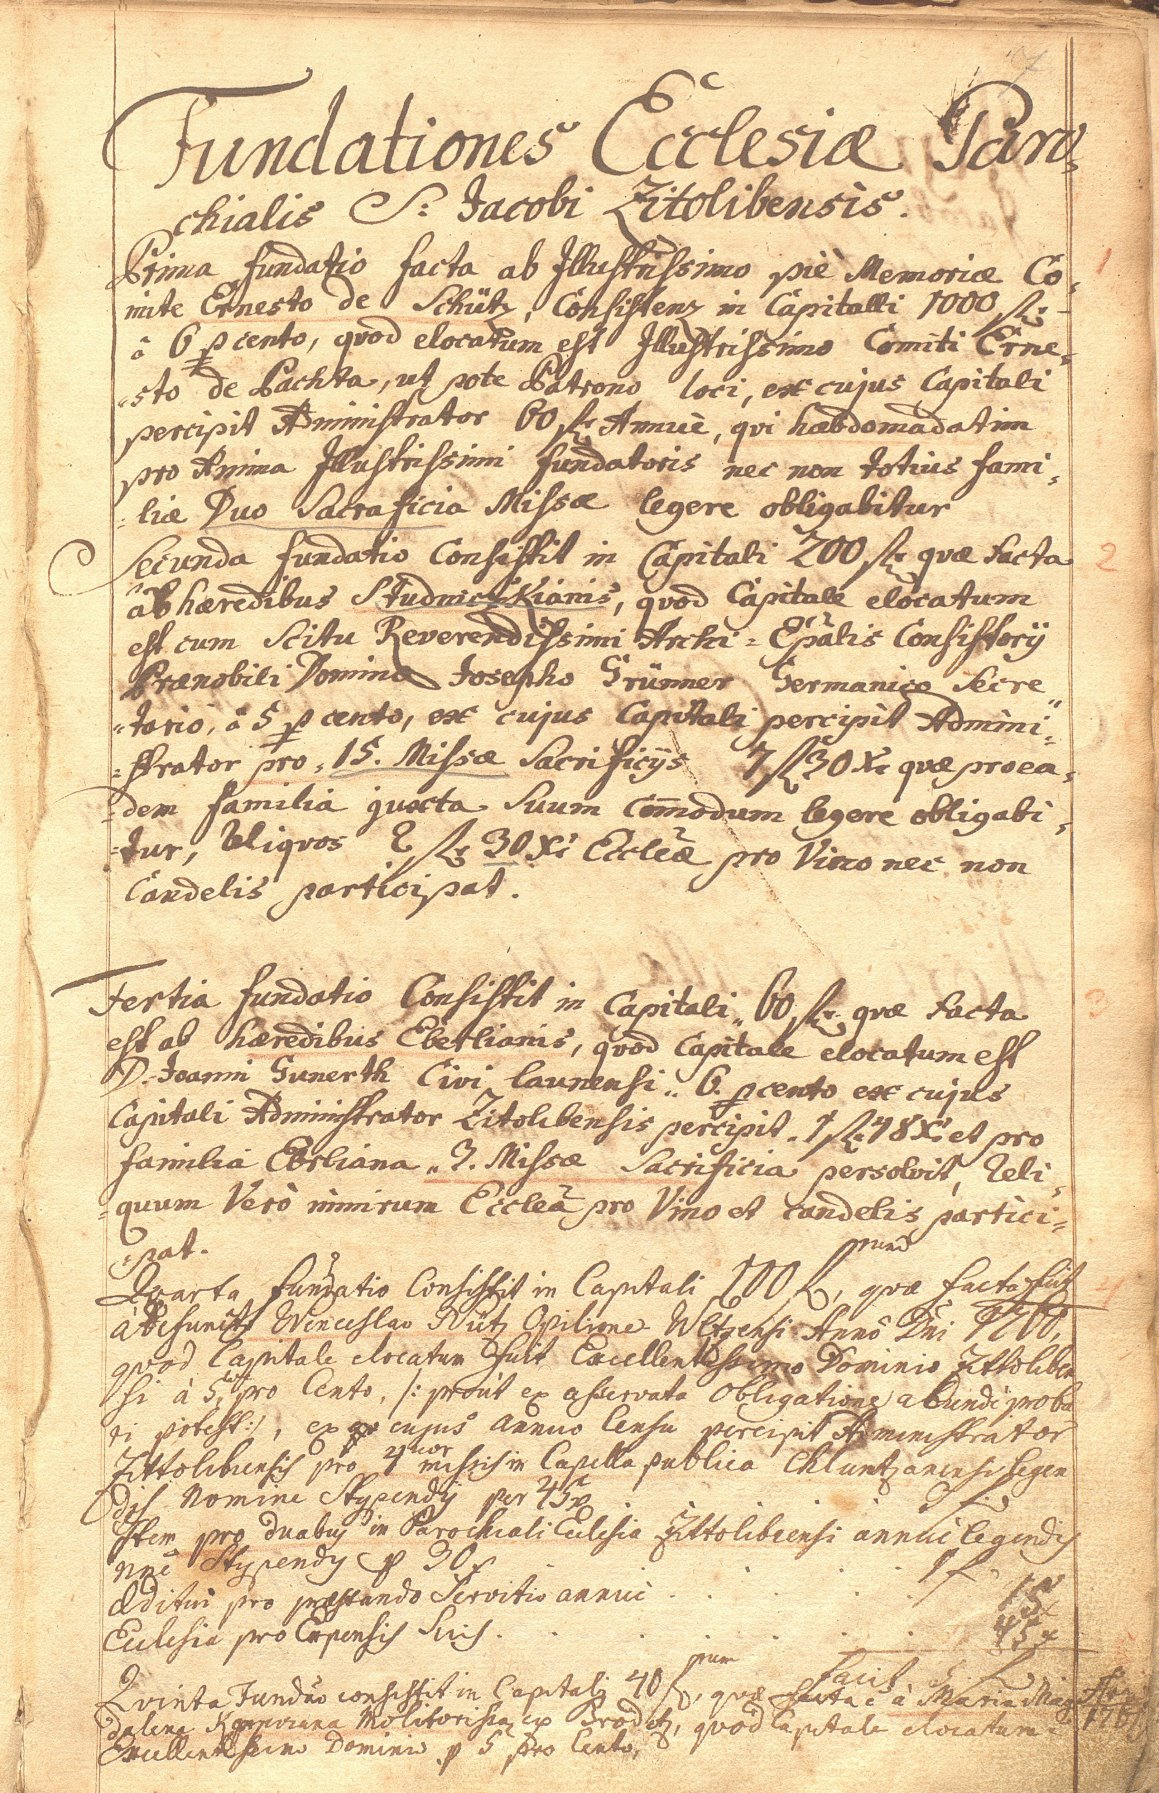 7
Fundationes Ecclesiæ Paro,
chialis S: Jacobi Zitolibensis.
Prima fundatio facta ab Illustrissimo piè Memoriæ Co,
mite Ernesto de Schütz, Consistens in Capitalli 1000 fl:
â 6 p cento, quod elocatum est Illustrissimo Comiti Erne,
sto de Pachta, ut pote Patrono loci, ex cujus Capitali
percipit Administrator 60 fl: Annuè, qvi hæbdomadatim
pro Anima Illustrissimi fundatoris nec non totius fami,
liæ Duo Sacraficia Missæ legere obligabitur
1
Secunda fundatio Consistit in Capitali 200 fl: quæ facta
ab hæredibus Studniczkianis, quod Capitale elocatum
est cum Scitu Reverendissimi Archi = Epãlis Consistorij
Prænobili Domino Josepho Grünner Germanico Secre
tario, â 5 p cento, ex cujus Capitali percipit Admini,
strator pro, 15. Missæ Sacrificijs 7 fl 30 X: quæ pro ea,
dem familia juxta Suum Com̃odum legere obligabi,
tur, Reliqvos 2 fl: 30 X: Eccleã pro Vino nec non
Candelis participat.
2
Tertia fundatio Consistit in Capitali 60 fl: quæ facta
est ab hæredibus Eberlianis, quod Capitale elocatum est
D. Joanni Gunerth Civi Launensi 6. p cento ex cujus
Capitali Administrator Zitolibensis percipit 1 fl: 48 X: et pro
familia Eberliana 3. Missæ Sacrificia persolvit, Reli,
quum Verò nimirum Eccleã pro Vino et Candelis partici,
pat.
3
Qvarta fundatio Consistit in Capitali 100 f, quæ facta fuit
à defuncto Wenceslao Nütz Opilione Anno Dñi
quod Capitale elocatum fuit Excellentissimo Dominio Zittoliben
si à 5 pro Cento, /: prout ex asservata Obligatione abundè proba
ri potest :/, ex cujus annuo Censu percipit Administrator
Zittolibiensis pro 4uor missis in Capella publica Chluntzanensi legen
dis Nomine Stypendij per 45 x
4
Item pro duabus in Parochiali Eclesia Zittolibiensi annui legendis
nñe Stypendij p 30 x . . . . 1 f.
Æditui pro præstando Servitio annui . . . 15 x
Eclesiæ pro Expensis Suis . . . . . 45 x
Facit 5 f
Qvinta Fundão consistit in Capitali 40 f, quæ facta è à Maria Mag
dalena Molitorissa ex Broditz, quod Capitale elocatum è
Excellentissimo Dominio p 5 pro Cento,